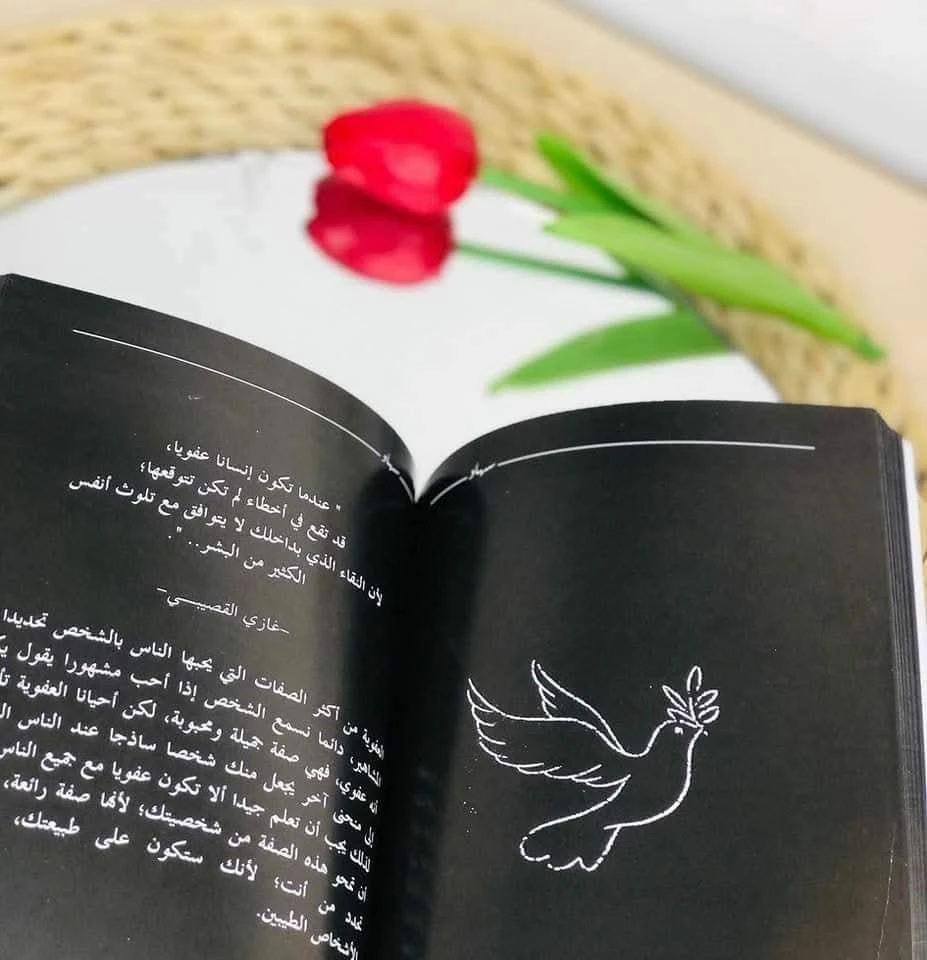 " عندما تكون إنسانا عفويا،
قد تقع في أخطاء لم تكن تتوقعها؛
لأن النقاء الذي بداخلك لا يتوافق مع تلوث أنفس
الكثير من البشر.. ".
-غازي القصيبي-
العفوية من أكثر الصفات التي يحبها الناس بالشخص تحديدا
المشاهير، دائما نسمع الشخص إذا أحب مشهورا يقول
أنه عفوي، فهي صفة جميلة ومحبوبة، لكن أحيانا العفوية
إلى منحنى آخر يجعل منك شخصا ساذجا عند الناس
لذلك يجب أن تعلم جيدا ألا تكون عفويا مع جميع الناس
أن تمحو هذه الصفة من شخصيتك؛ لأنها صفة رائعة،
تحدد من أنت؛ لأنك ستكون على طبيعتك،
الأشخاص الطيبين.